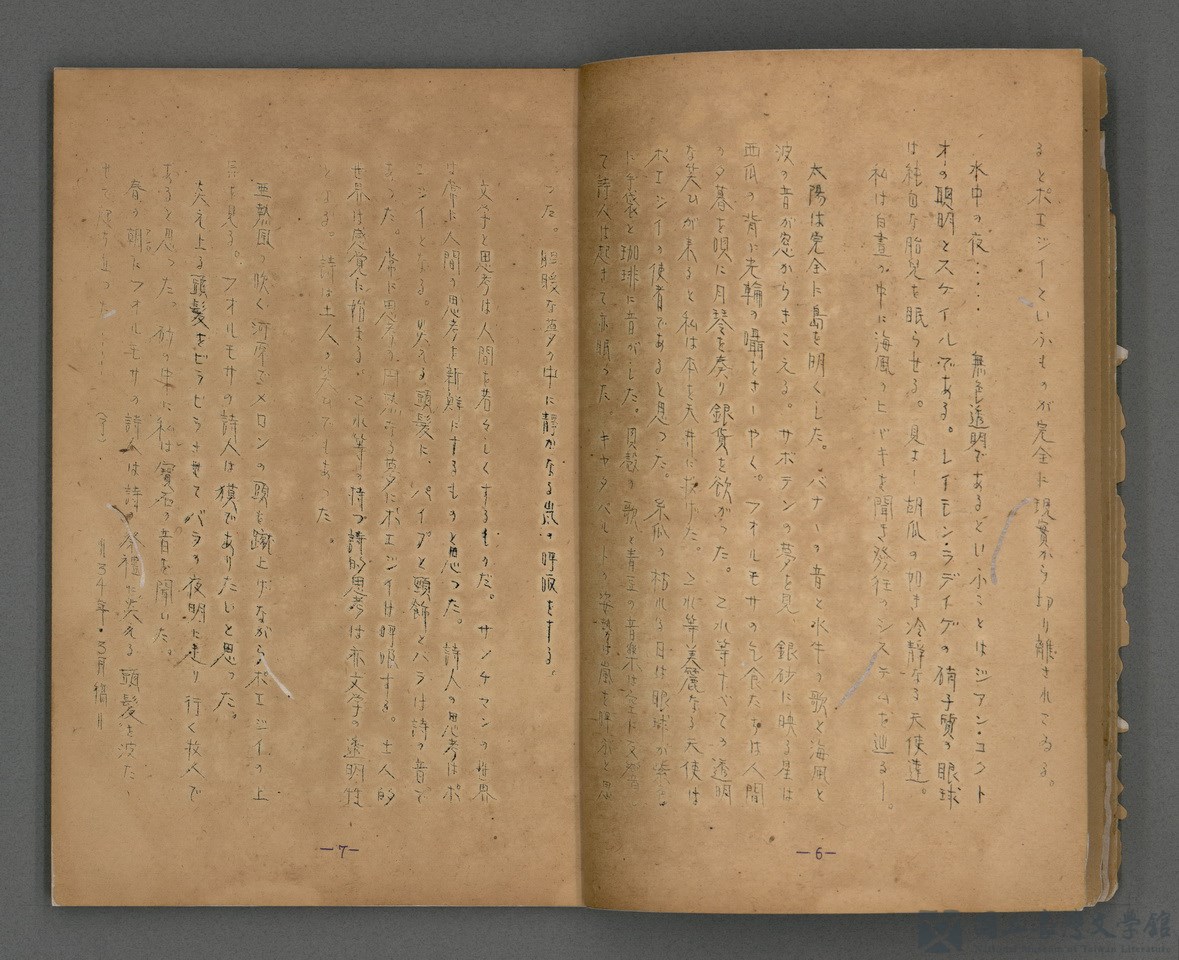 るとポエジイといふものが完全に現實から切り離されてゐる。
水中の夜・・・・ 無色透明であるといふことはジアン・コクト
オの聰明とスケイルである。レイモン・ラディゲの硝子質の眼球
は純白な胎兒を眠らせる。見よ！胡瓜の如き冷靜なる天使達。
私は白晝の中に海風のヒビキを聞き發狂のシステムを辿る！。
太陽は完全に島を明くした。バナナの音と水牛の歌と海風と
波の音が窓からきこえる。サボテンの夢を見、銀砂に映る星は
西瓜の背に光輪の囁をさゝやく。フオルモサの乞食たちは人間
の夕暮を唄に月琴を奏り銀貨を欲がつた。之水等すべての透明
な笑ひが來ると私は本を天井に投げた。之水等美麗なる天使は
ポエジイの使者であると思つた。糸瓜の枯れる日は眼球が
に手袋と珈琲に音がした。貝殼の歌と青豆の音樂は空に
て詩人は起きて亦眠つた。キャタパルトの
つた。朦朧な夢の中に靜かなる嵐の呼吸をする。
文學と思考は人間を若々しくするものだ。サンチマンの世界
は常に人間の思考を新鮮にするものと思つた。詩人の思考はポ
エジイとなる。炎える頭髮に、パイプと頸飾とバラは詩の音で
あつた。常に思考の円熟なる夢にポエジイは呼吸する。土人的
世界は感覚に始まるが之水等の特つ詩的思考は亦文学の透明性
となる。詩は土人の笑ひでもあつた。
亞熱風の吹く河岸でメロンの頭を蹴上げながらポエジイの上
昇を見る。フオルモサの詩人は獏でありたいと思つた。
炎え上る頭髮をビラビラさせてバラの夜明に走り行く牧人で
あると思つた。砂の中に私は寶石の音を聞いた。
春の朝にフオルモサの詩人は詩の祭禮に炎える頭髮を波たゝ
せて起き直つた・・・・
34年・3月稿
—6—
—7—
國立臺灣文學館
National Museum of Taiwan Literature